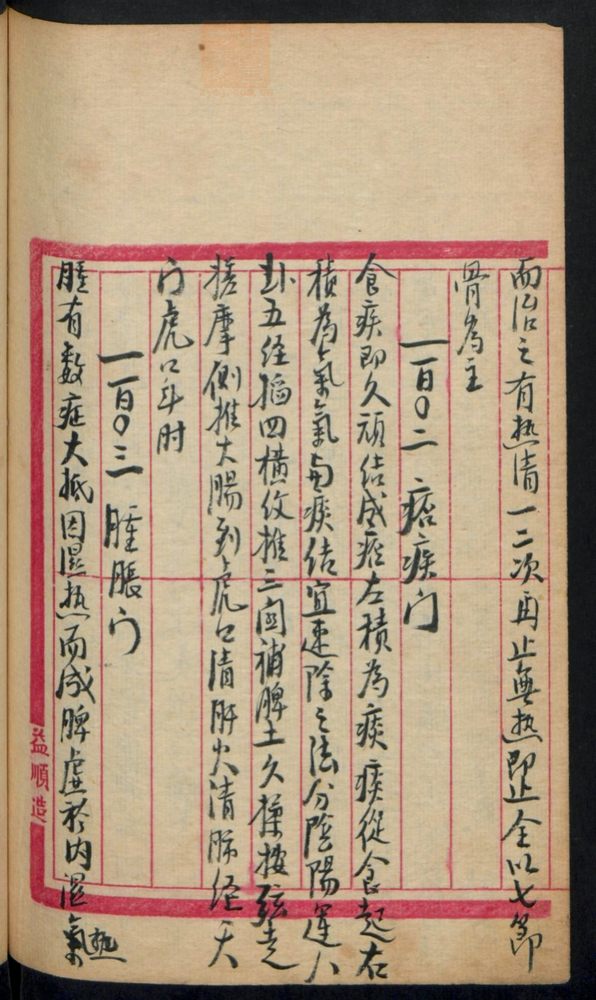 而治之有热清一二次再止無热即止全以七節
骨為主
一百〇二 痞疾门
食疾即久頑结成痞左積為痰痰從食起右
積為氣氣与痰结宜速除之法分陰陽運八
卦五经掐四横纹推三関補脾土久揉按弦走
搓摩側推大腸到虎口清肝火清肺经天
门虎口斗肘
一百〇三 腫脹门
腫有数症大抵因湿热而成脾虚於内湿氣热
益順造